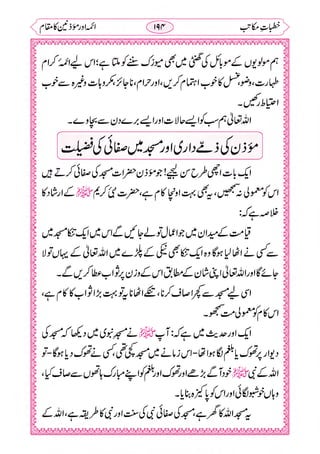 خطباتِ مکاتب ۱۹۴ ائمہ اور مؤذنین کا مقام
ہم مولویوں کے موبائل کی گھنٹی میں بھی میوزک سننے کو ملتا ہے! اس لیے ائمۂ کرام
طہارت، وضو، غسل کا خوب اہتمام کریں، اور حرام، ناجائز، مکروہات وغیرہ سے خوب
احتیاط رکھیں۔
اللہ تعالیٰ ہم سب کو ایسے حالات اور ایسے برے دن سے بچاوے۔
مؤذن کی ذمّے داری اور مسجد میں صفائی کی فضیلت
ایک بات اچھی طرح سن لیجیے! جو مؤذن حضرات مسجد کی صفائی کرتے ہیں
اس کو معمولی نہ سمجھیں، یہ بھی بہت اونچا کام ہے، حضرت نبی کریم ﷺ کے ارشاد کا
خلاصہ ہے کہ:
قیامت کے میدان میں جب اعمال تولے جائیں گے اس میں ایک تنکا مسجد
سے کسی نے اٹھایا ہوگا وہ ایک تنکا بھی نیکی کے پلڑے میں اللہ تعالیٰ کے یہاں تولا
جائے گا اور اللہ تعالیٰ اپنی شان کے مطابق اس کے وزن پر ثواب عطا کریں گے۔
اسی لیے مسجد سے کچرا صاف کرنا، تنکے اٹھانا یہ تو بہت بڑا ثواب کا کام ہے،
اس کام کو معمولی مت سمجھو۔
ایک اور حدیث میں ہے کہ: آپ ﷺ نے مسجدِ نبوی میں دیکھا کہ مسجد کی
دیوار پر تھوک یا بلغم لگا ہوا تھا۔ اس زمانے میں مسجد کچی تھی، کسی نے تھوک دیا ہوگا۔ تو
اللہ کے نبی ﷺ خود آگے بڑھے اور تھوک اور بلغم کو اپنے مبارک ہاتھوں سے صاف کیا،
وہاں خوشبو لگائی اور اس کو پاکیزہ بنایا۔
یہ مسجد اللہ کا گھر ہے، مسجد کی صفائی نبی کی سنت اور نبی کا طریقہ ہے، اللہ کے